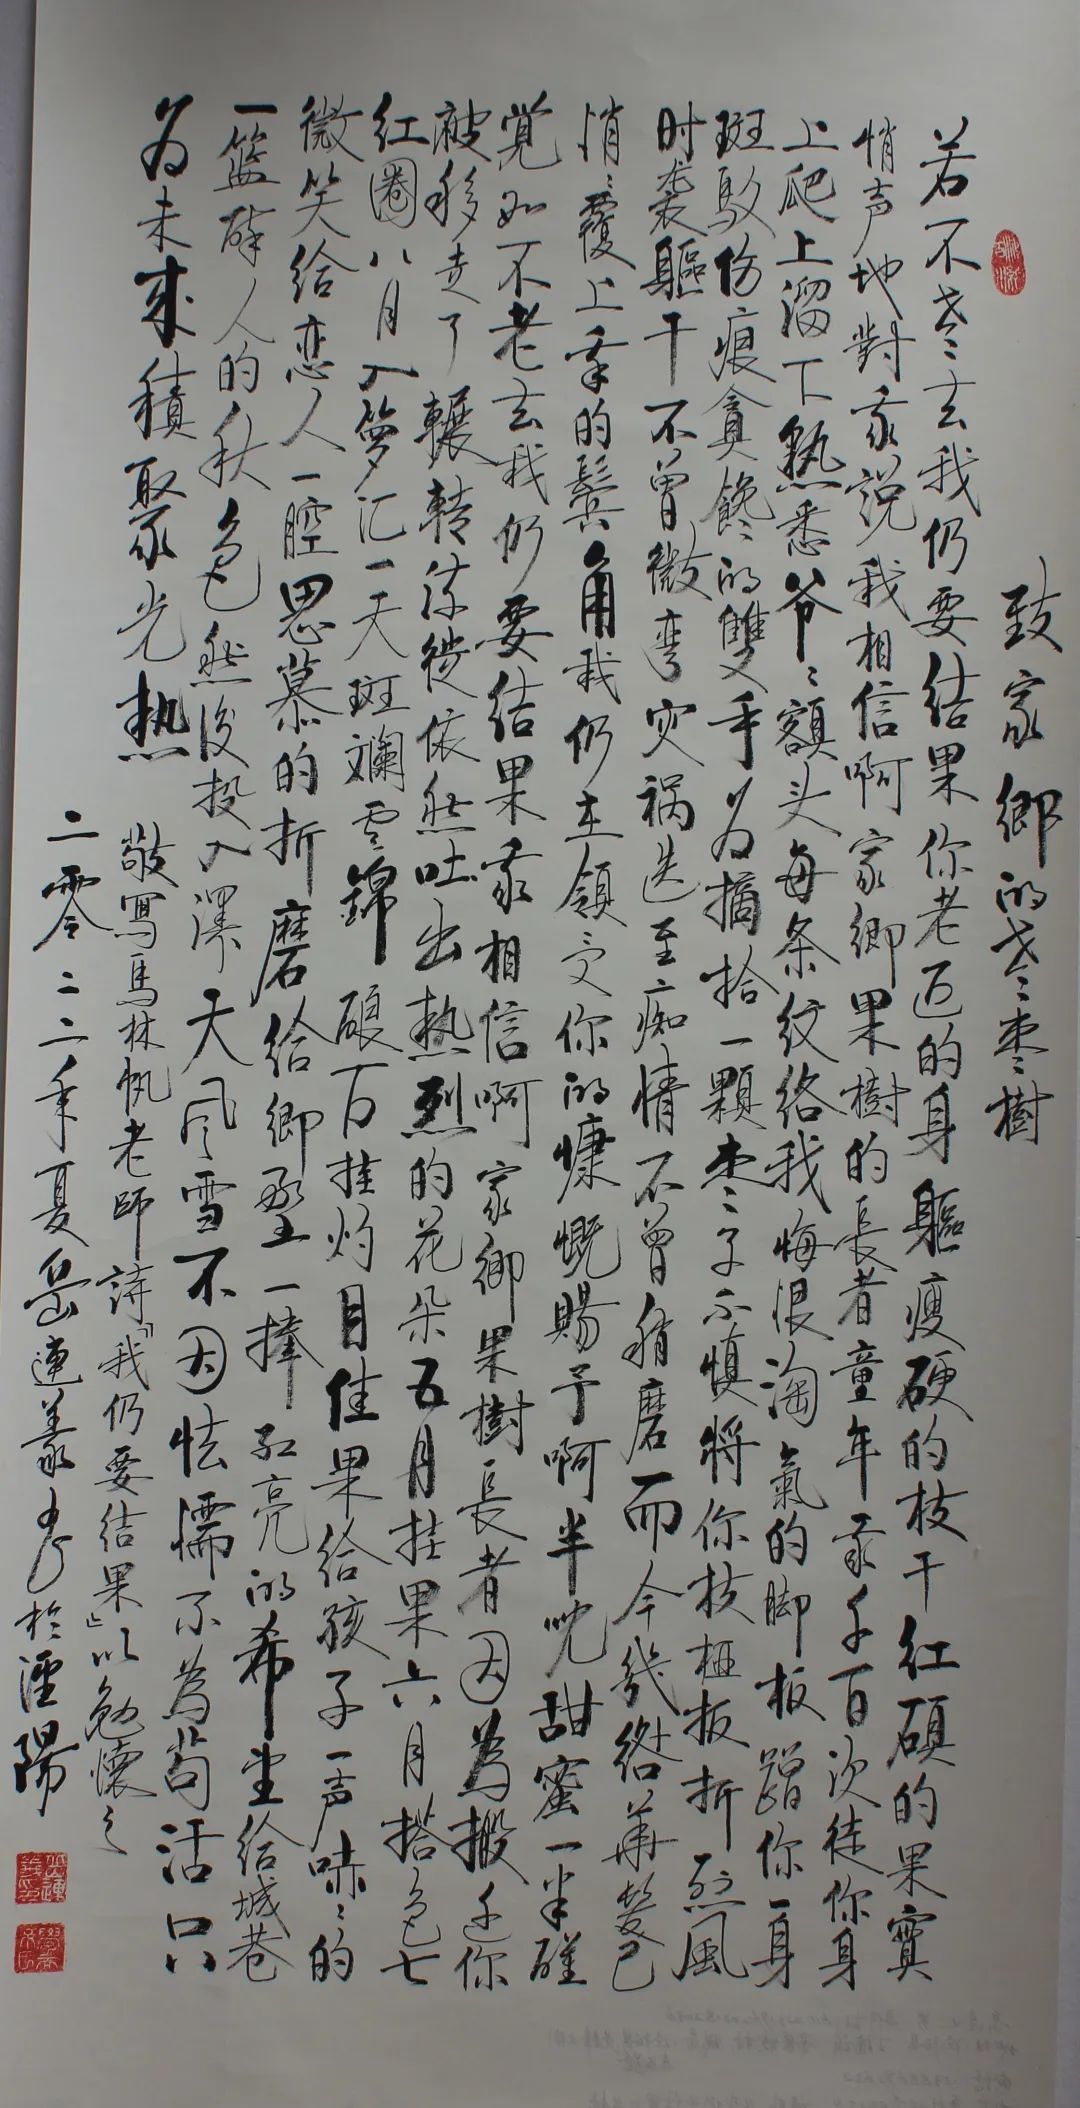 致家鄉的老棗樹
若不老去我仍要结果你老迈的身軀瘦硬的枝干红碩的果實
悄声地對我説我相信啊家鄉果樹的長者童年我千百次從你身
上爬上溜下熟悉爷々额头每条纹络我悔恨淘氣的脚板蹭你一身
斑駁伤痕貪馋的雙手为摘拾一顆枣子不慎将你枝桠扳折烈風
时袭軀干不曾微弯灾祸迭至痴情不曾稍磨而今幾綹華髮已
悄々覆上我的鬓角我仍在領受你的慷慨賜予啊半晚甜蜜一半醒
覺如不老去我仍要结果我相信啊家鄉果樹長者因為搬迁你
被移走了輾转流徙依然吐出熱烈的花朵五月挂果六月搭色七
红圈八月入箩汇一天斑斓雲錦碩百挂灼目佳果给孩子一声哧々的
微笑给恋人一腔思慕的折磨给鄉野一捧红亮的希望给城巷
一篮醉人的秋色然後投入漠天风雪不因怯懦不為苟活只
为未来積聚光热
敬寫馬林帆老師詩『我仍要结果』以勉懷之
二零二二年夏岳連義書於涇陽